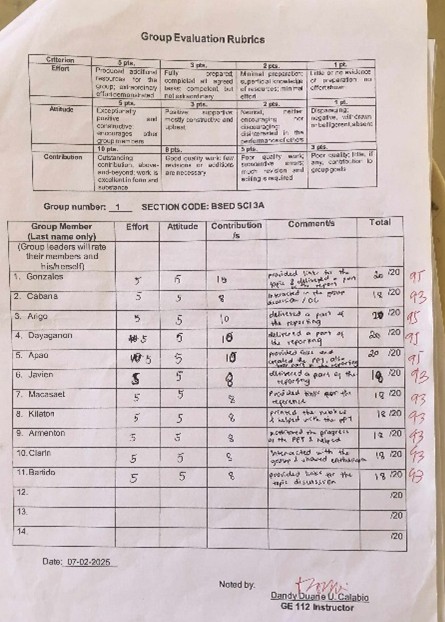 Group Evaluation Rubrics
Criterion 5 pts. 3 pts. 2 pts. 1 pt.
Effort Produced additional resources for the group; extraordinary effort demonstrated Fully prepared; completed all agreed tasks; competent, but not extraordinary Minimal preparation; superficial knowledge of resources; minimal effort Little or no evidence of preparation no effort shown
5 pts. 3 pts. 2 pts. 1 pt.
Attitude Exceptionally positive and constructive; encourages other group members Positive supportive mostly constructive and upbeat Neutral, neither encouraging nor discouraging; disinterested in the performance of others Disparaging; negative, withdrawn or belligerent; absent
10 pts. 8 pts. 5 pts. 3 pts.
Contribution Outstanding contribution, above-and-beyond; work is excellent in form and substance Good quality work; few revisions or additions are necessary Poor quality work; substantive errors; much revision and editing is required Poor quality; little, if any, contribution to group goals
Group number: 1 SECTION CODE: BSED SCI 3A
Group Member (Last name only) Effort Attitude Contribution /s Comment/s Total
(Group leaders will rate their members and his/herself)
1. Gonzales 5 5 10 provided links for the topic & delivered a part of the report 20 /20 95
2. Cabana 5 5 8 interacted in the group 18 /20 93
3. Arigo 5 5 10 delivered a part of the reporting 20 /20 95
4. Dayaganon 5 5 10 delivered a part of the reporting 20 /20 95
5. Apao 5 5 10 20 /20 95
6. Javien 5 5 8 delivered a part of the reporting 18 /20 93
7. Macasaet 5 5 8 provided reference 18 /20 93
8. Kilaton 5 5 8 printed the rubrics & helped with the PPT 18 /20 93
9. Armenton 5 5 8 the progress of the PPT & helped 18 /20 93
10. Clarin 5 5 8 interacted with the group & showed enthusiasm 18 /20 93
11. Bartido 5 5 8 provided for the topic discussion 18 /20 93
12. /20
13. /20
14. /20
Date: 07-02-2025
Noted by:
Dandy Duane U. Calabio
GE 112 Instructor